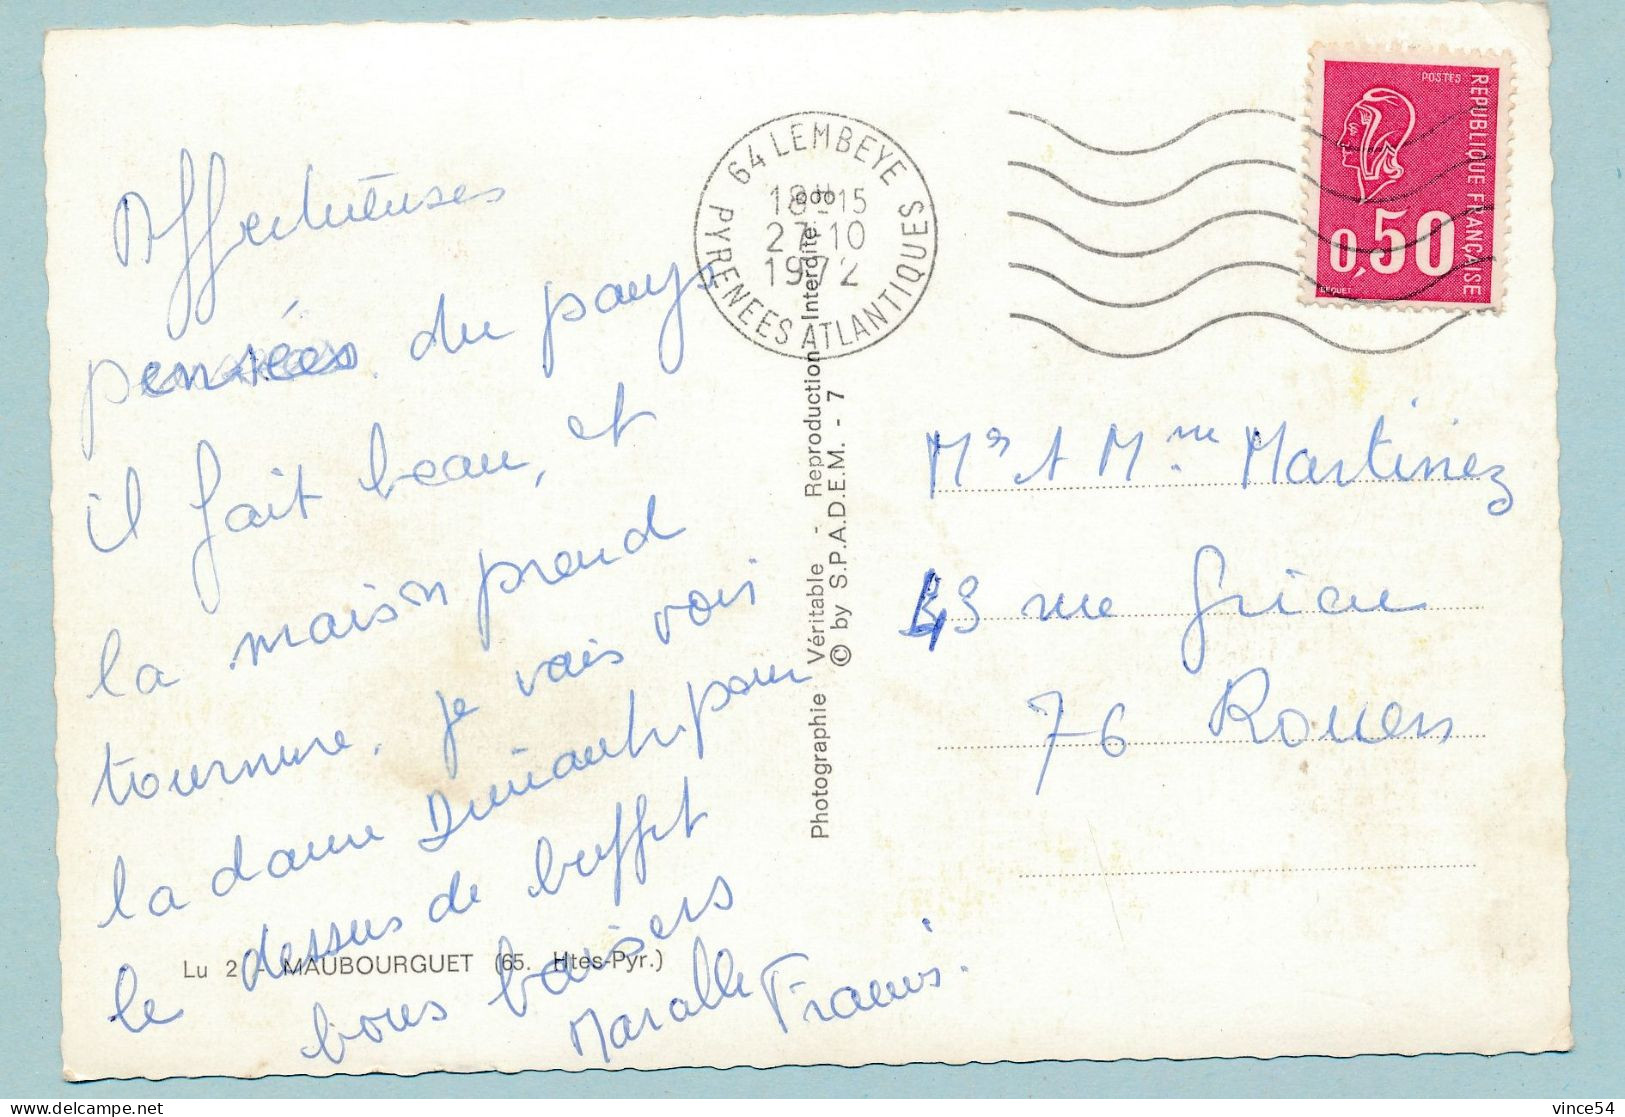 Affectueuses
pensées du pays
il fait beau, et
la maison prend
tournure, je vais voir
la dame pour
le dessus de buffet
bons baisers
Francis.
Lu 2 - MAUBOURGUET (65. Htes-Pyr.)
Photographie Véritable - Reproduction Interdite
© by S.P.A.D.E.M. - 7
64 LEMBEYE
18H15
27-10
1972
PYRENEES ATLANTIQUES
POSTES
REPUBLIQUE FRANÇAISE
0,50
Mr et Mme Martinez
43 rue Grieu
76 Rouen
vince54